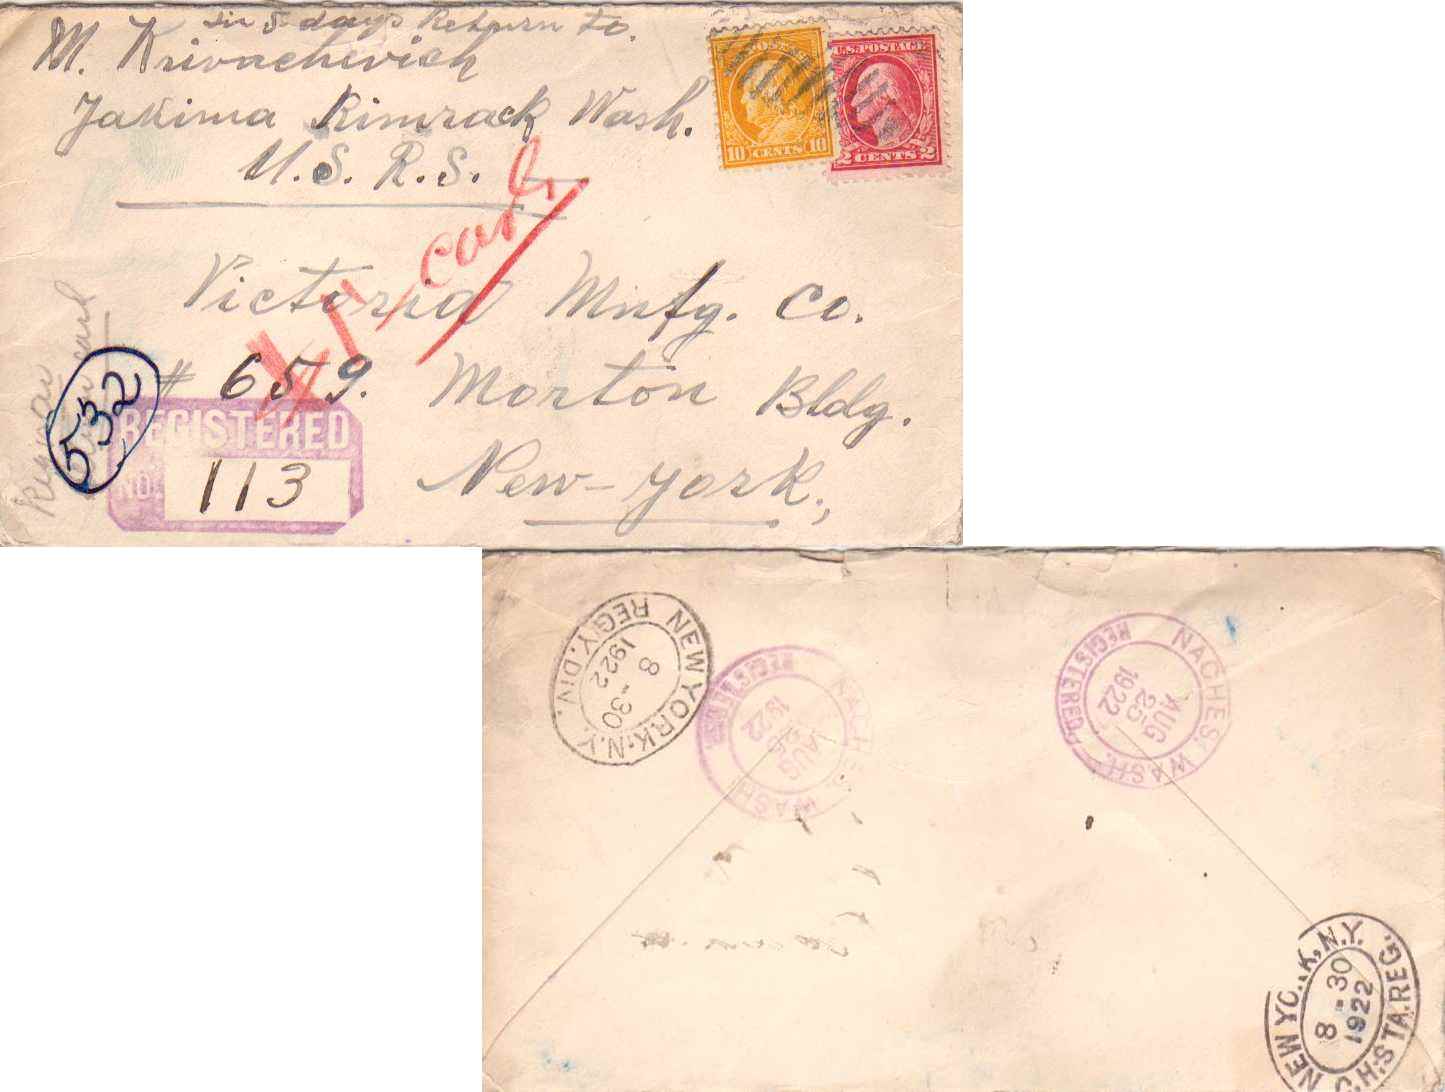 in 5 days Return to.
M. Krivachevich
Yakima Rimrack Wash.
U.S.R.S.
POSTAGE
10 CENTS 10
U.S.POSTAGE
2 CENTS 2
Victoria Mnfg. Co.
# 659. Morton Bldg.
New-York.,
532
REGISTERED
NO.
113
NEW YORK, N.Y.
8-30
1922
REG'Y. DIV.
NACHES, WASH.
AUG
1922
REGISTERED
NACHES, WASH.
AUG
25
1922
REGISTERED
N.Y.
8-30
1922
STA.REG.